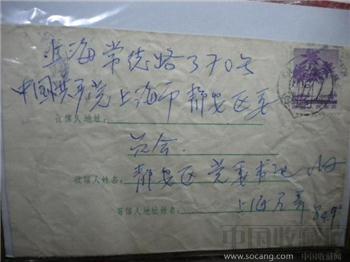 上海常德路370号
中国共产党上海市静安区委
收信人地址：
员会
静安区 党委书记
收信人姓名：
上海
寄信人地址姓名：
中国收藏网
www.socang.com 中国收藏网